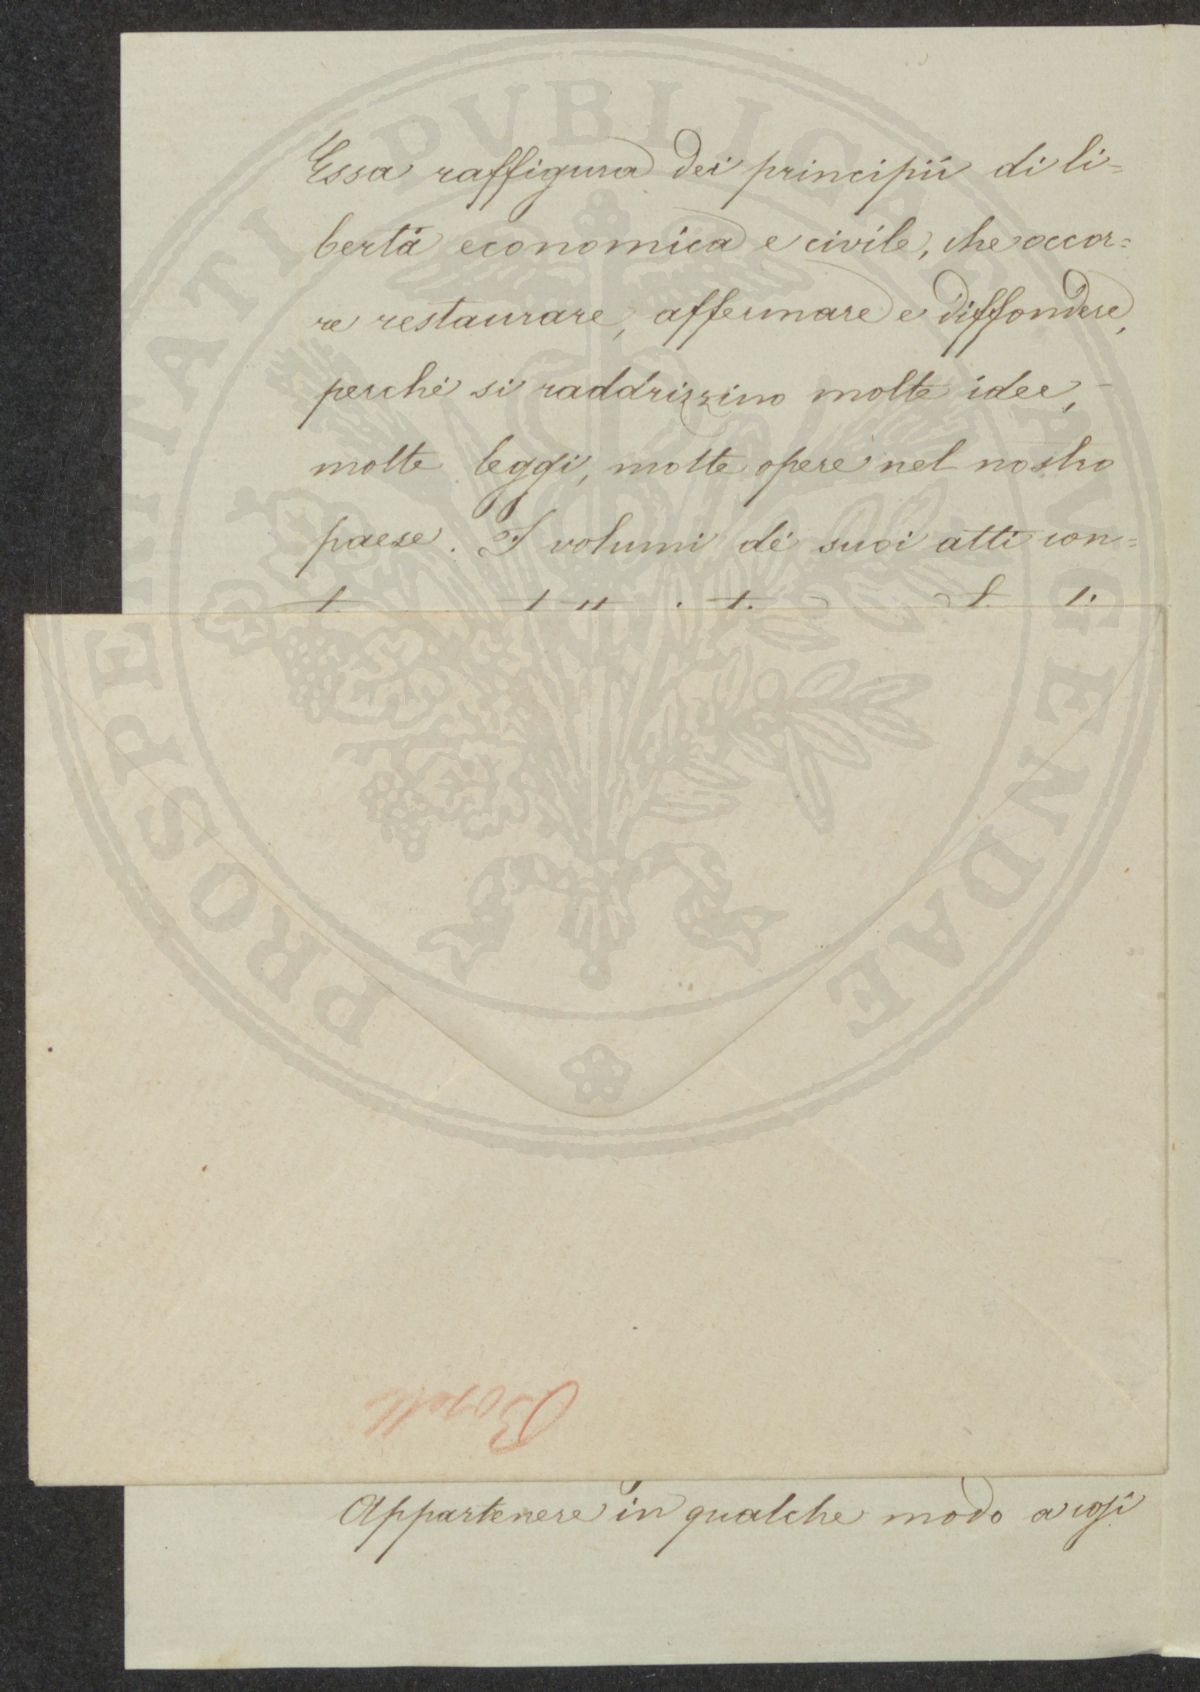 Essa raffigura dei principii di li=
bertà economica e civile, che occor=
re restaurare, affermare e diffondere,
perchè si raddrizzino molte idee,
molte leggi, molte opere nel nostro
paese. I volumi dei suoi atti con=
Appartenere in qualche modo a così
Boselli
PROSPERITATI PVBLICAE AVGENDAE